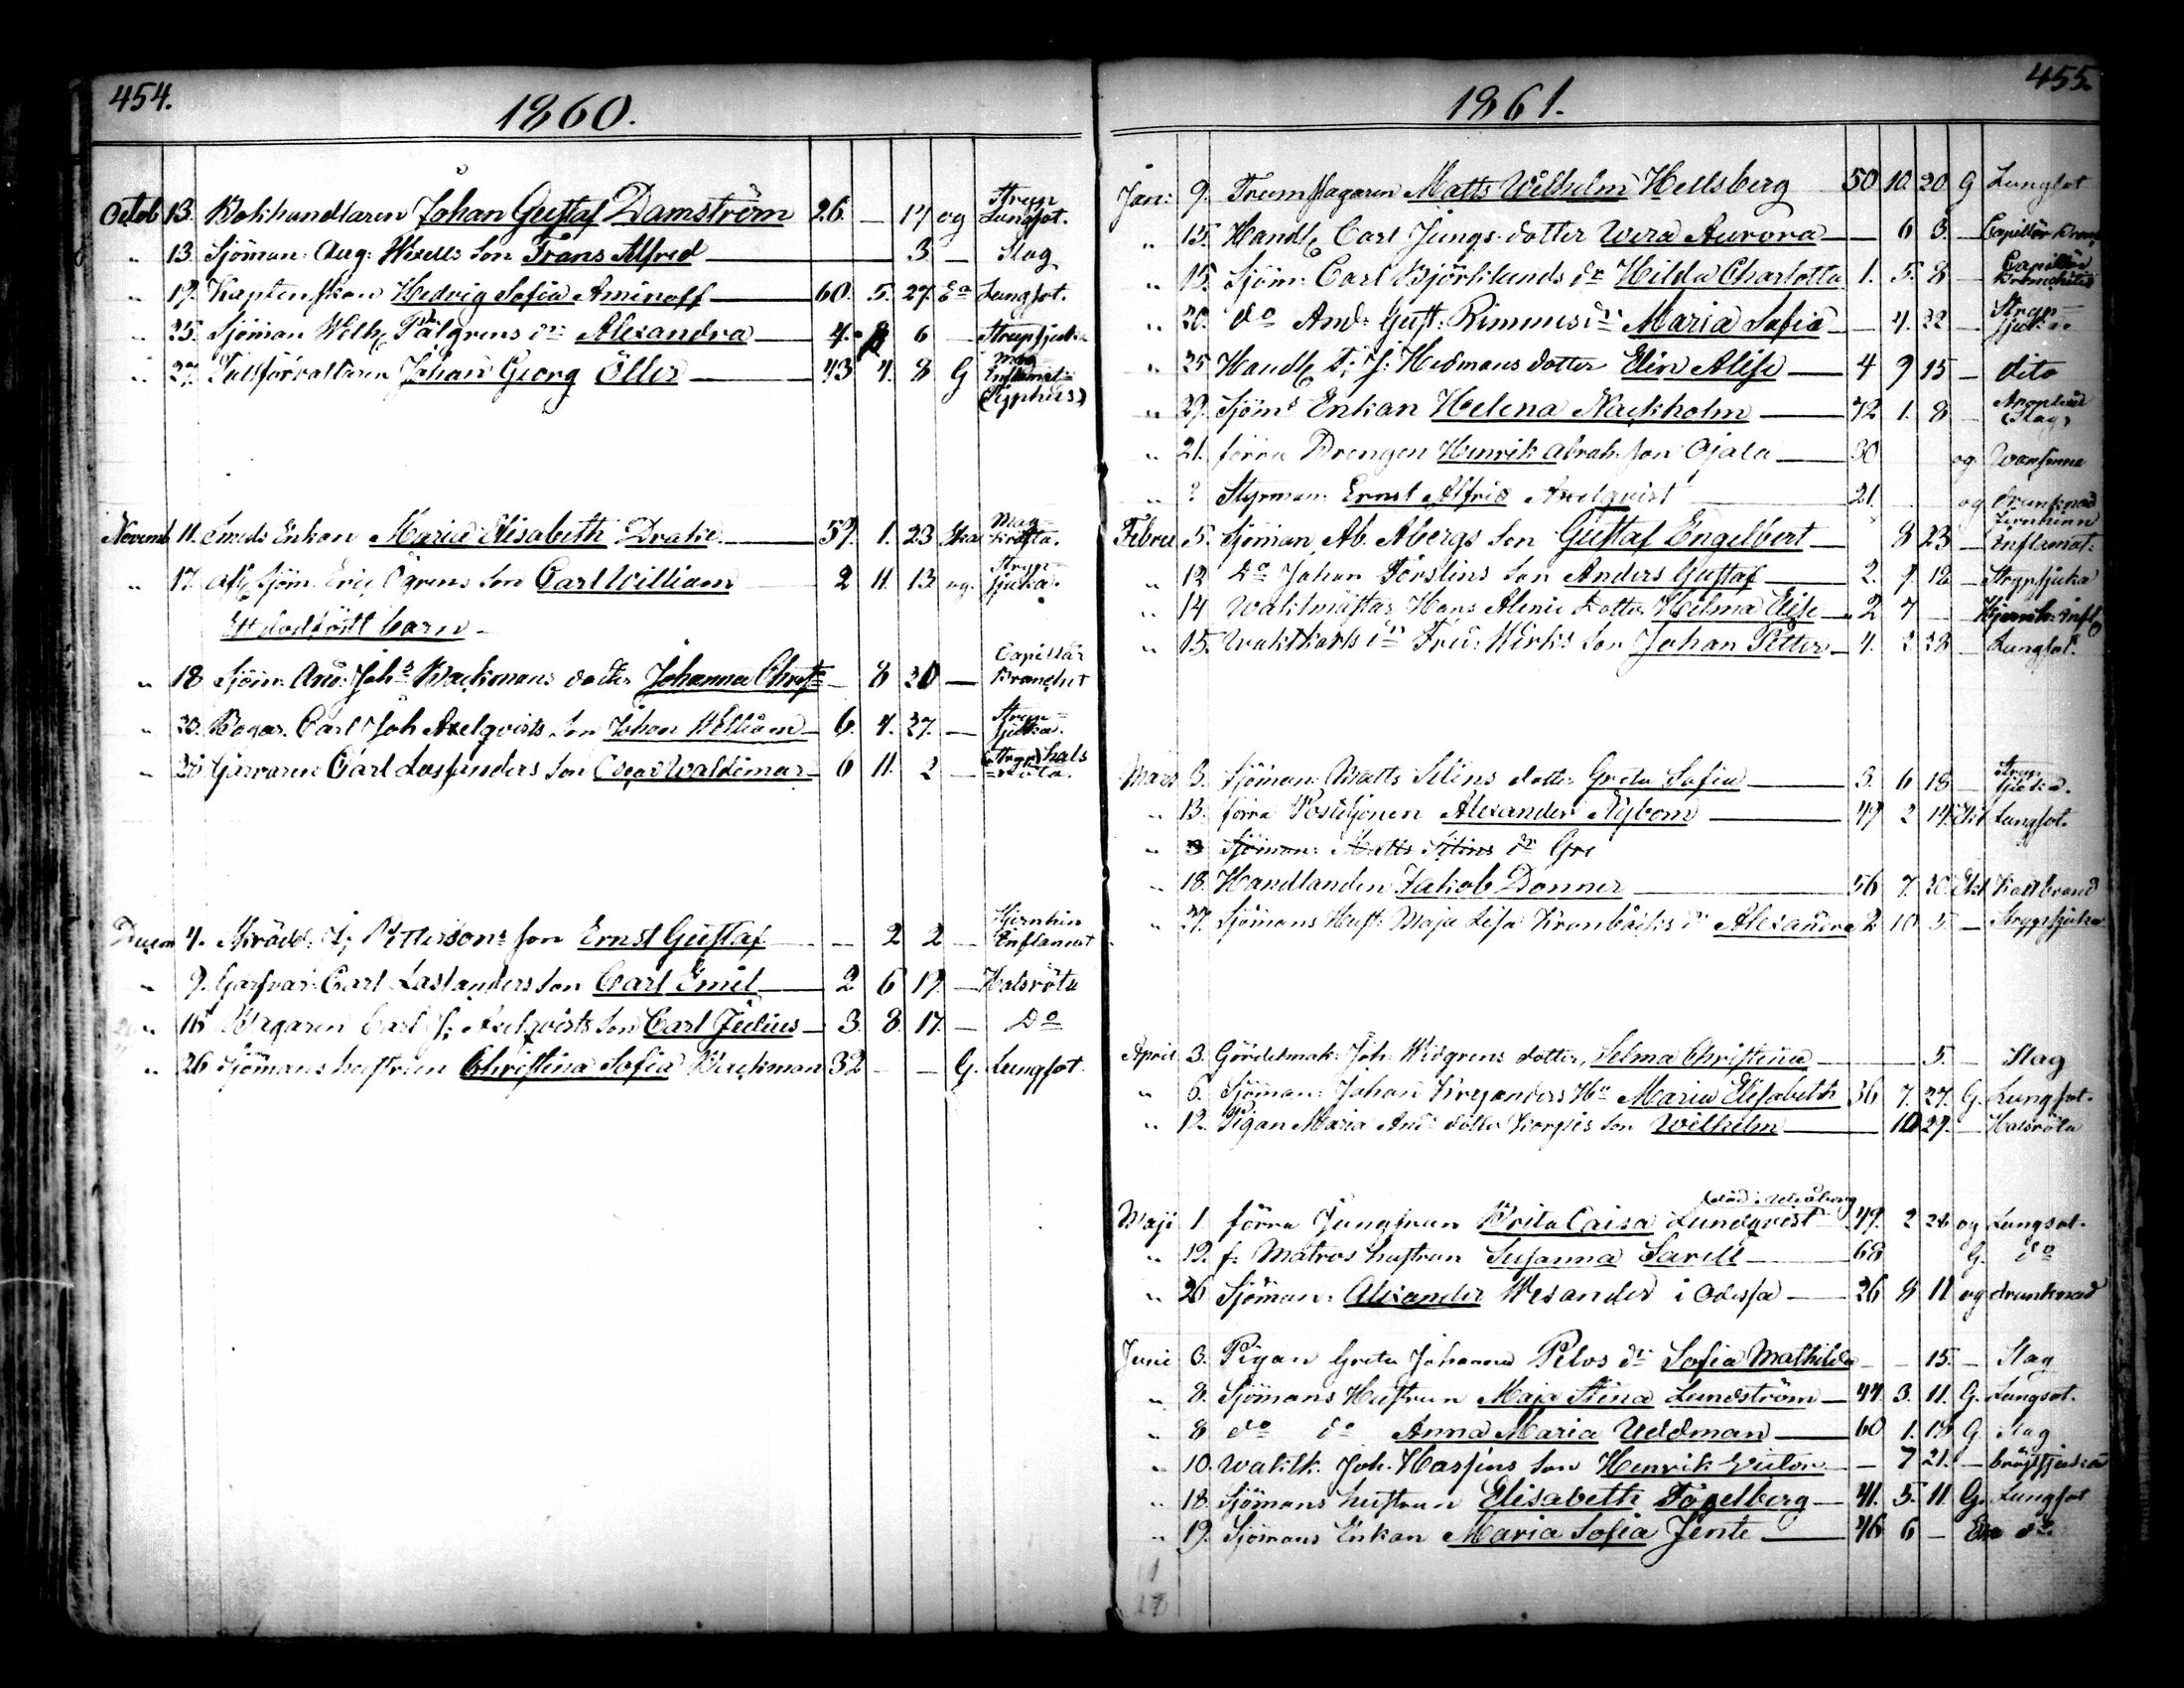 454.
1860.
Octob 13. Bokhandlaren Johan Gustaf Damström 26. — 17 og Stryp Lungsot.
" 13. Sjöman: Aug: Wexells Son Frans Alfred — 3 — Slag
" 19. Kaptensskan Hedvig Sofia Aminoff — 60. 5. 27. Ea Lungsot.
" 25. Sjöman Wilh: Pålgrens dr Alexandra — 4. 6 — Strupsjuka
" 27. Tullförvaltaren Johan Georg Öller — 43 4. 8 G Mag Inflamat: (Typhus)
Novemb 11. Smeds Enkan Maria Elisabeth Drake — 59. 1. 23 Eka Mag Kräfta.
" 17. Afl: Sjöm: Eric Ögrens Son Carl William 2 11. 13 og. Stryp sjuka.
Ett dödfödt barn —
" 18 Sjöm: And: Johs Backmans dotter Johanna Christ: — 8 20 — Capillär Bronchit
" 20. Bagar. Carl Joh Axelqvists Son Johan William 6. 4. 27. — Stryp sjuka.
" 20 Garvaren Carl Laslanders Son Oscar Waldemar 6 11. 2 — (Stryp) hals röta.
Decem 4. Skrädd: J: Pettersons son Ernst Gustaf — 2 2 — Hjernhin Inflamat
" 9. Garfvar: Carl Laslanders Son Carl Emil — 2 6 19. — Halsröta
" 16 Bagaren Carl J: Axelqvists Son Carl Julius — 3. 8. 17. — Do
" 26 Sjömans hustrun Christina Sofia Backman 32 — — G. Lungsot.
455.
1861.
Jan: 9. Trumslagaren Matts Wilhelm Hellsberg 50 10 20 G Lungsot
" 15. Handl: Carl Jungs dotter Wera Aurora — 6 3. — Capillär Bronch
" 15. Sjöm: Carl Björklunds dr Hilda Charlotta 1. 5. 8 — Capillär Bronchites
" 20. do And: Gust: Rimmus dr Maria Sofia — 4. 22 — Stryp sjuka
" 25 Handl: F: J: Hedmans dotter Elin Alise — 4 9 15 — dito
" 29. Sjöms Enkan Helena Nackholm — 72 1. 8 — (Slag)
" 21. förra Drengen Henrik Abrah. Son Ojala — 30 og Wansinne
" ? Styrman: Ernst Alfred Axelqvist 21 og Drunknad
Febru 5. Sjöman Ab. Åbergs Son Gustaf Engelbert — 8 23 — Hjernhinn Inflamat:
" 12 do Johan Forslins Son Anders Gustaf — 2. 1. 12 — Strypsjuka
" 14 Waktmästar Hans Alenii dotter Hilma Elise 2 7 — Hjernh: Infl
" 15. Waktkarls dr Fred: Wirks Son Johan Petter 4. 2 28 — Lungsot.
Mars 3. Sjöman: Matts Silins dotter Greta Sofia — 3. 6 18 — Stryp sjuka.
" 13. förra Postiljonen Alexander Nybom — 49 2 14 Ekl Lungsot.
" 3 Sjöman: Matts Silins dr Gre
" 18. Handlanden Jakob Donner — 56 7. 20 Ekl Kallbrand
" 27. Sjömans Hust: Maja Lisa Kronbäcks dr Alexandra 2 10 5. — Strypsjuka
April 3. Gördelmak: Joh: Widgrens dotter, Selma Christina — 5. — Slag
" 6. Sjöman: Johan Kreanders Hu Maria Elisabeth 36 7. 27. G. Lungsot.
" 12. Pigan Maria And: dotter Korpis Son Wilhelm — 10 29. — Halsröta
(död i Uleåborg
Maji 1 förra Jungfrun Brita Caisa Lundqvist 49. 2 28 og Lungsot.
" 12. f: Matros hustrun Susanna Sarell — 68 G. do
" 26 Sjöman: Alexander Wesander i Odessa — 26 8 11 og drunknad
Juni 3. Pigan Greta Johanna Pelos dr Sofia Mathilda — — 15. — Slag
" 8. Sjömans Hustrun Maja Stina Lundström — 44. 3. 11. G. Lungsot.
" 8 do do Anna Maria Uddman — 60 1. 18 G Slag
" 10. Waktk. Joh. Hassins Son Henrik — 7 21. — bröstsjuka
" 18. Sjömans hustrun Elisabeth Fogelberg — 41. 5. 11. G. Lungsot
" 19. Sjömans Enkan Maria Sofia Jente — 46 6 — Eka do